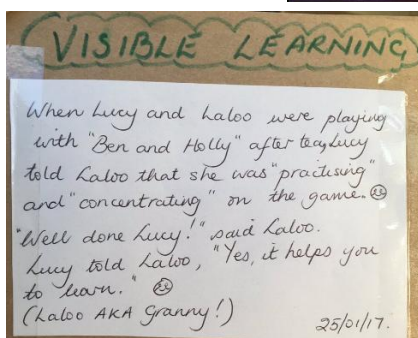 VISIBLE LEARNING
When Lucy and Laloo were playing
with "Ben and Holly" after tea, Lucy
told Laloo that she was "practising"
and "concentrating" on the game. ☺
"Well done Lucy!" said Laloo.
Lucy told Laloo, "Yes, it helps you
to learn." ☺
(Laloo AKA Granny!)
25/01/17.